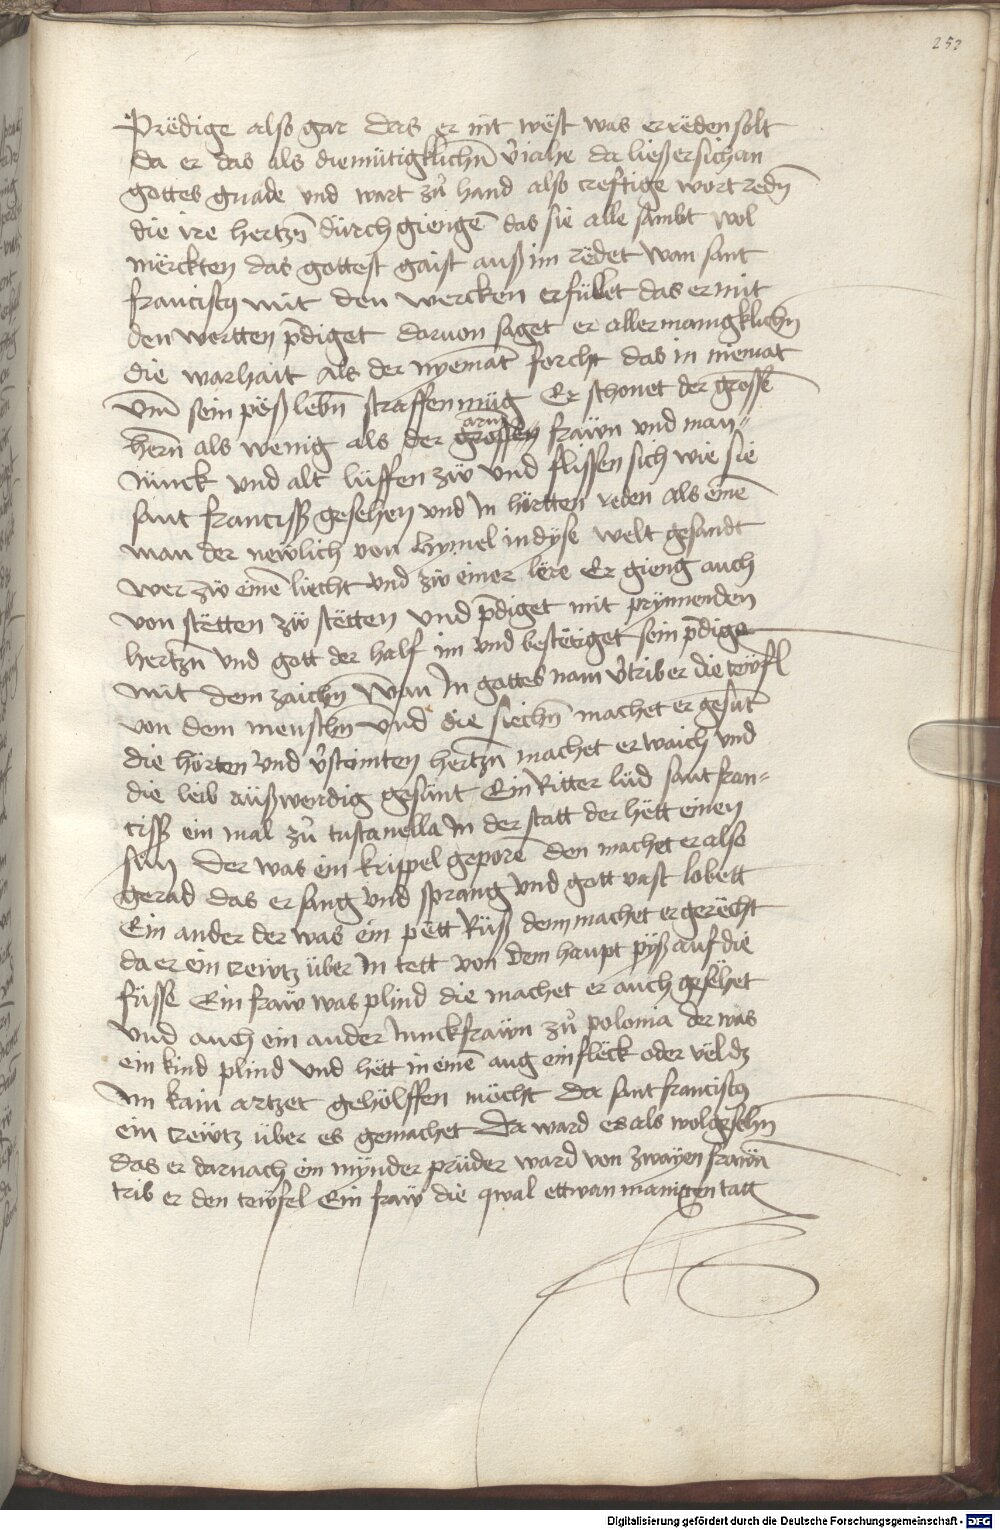 252
Prëdige also gar das er nit wëst was er rëden solt
da er das als diemütigklichn̄ v̉iahe da ließ er sich an
gottes gnade und wart zů hand also creftige wort redn̄
die ire hertzn̄ dürch giengē das sie alle sambt wol
mërckten das gottest gaist auß im rëdet wan sant
franciscꝰ mit den wercken erfüllet das er mit
den wertten p̄diget daruon saget er allermanigklichn̄
die warhait als der nyēmat forcht das in niemāt
vm̄ sein pëß lebn̄ straffen müg Er schonet der grossē
hern̄ als wenig als der grossen frawn und man⸗
armē
iunck vnd alt lüffen zw̄ vnd flissen sich wie sie
sant franciss gesehen vnd in hörtten reden als einē
man der newlich von hymel in dyse welt gesandt
wer zw̄ einē liecht vnd zw̄ einer lëre Er gieng auch
von stëtten zw̄ stëtten vnd p̄diget mit prynnenden
hertzn̄ vnd gott der half im vnd bestëtiget sein p̄dige
mit dem zaichn̄ Wan in gottes nam v̉trib er die tewfl
von dem menschn̄ vnd die siechn̄ machet er gesūt
die hörten vnd v̉stainten hertzn̄ machet er waich vnd
die leib aüßwendig gesünt Ein Ritter lüd sant fran⸗
ciss ein mal zů tuscanella in der statt der hëtt einen
sün der was ein krippel geporē den machet er also
gerad das er sang vnd sprang vnd gott vast lobett
Ein ander der was ein pett Riß dem machet er gerëcht
da er ein crewtz über in tett von dem haupt pyß auf die
füsse Ein fraw was plind die machet er auch gesëhet
vnd auch ein ander iunckfrawn zů polonia der was
ein kind plind vnd hëtt in einē aug ein flëck oder vëldz
im kain artzet gehölffen möcht da sant franciscꝰ
ein crewtz über es gemachet Da ward es als wolgesehn̄
das er darnach ein mynder prüder ward von zwayen frawn̄
trib er den tewfel Ein fraw die qwal ettwan manigen tag
Digitalisierung gefördert durch die Deutsche Forschungsgemeinschaft - DFG